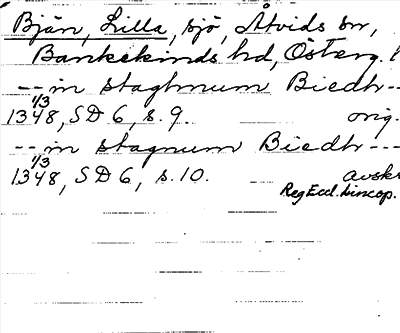 Bjän, Lilla, sjö, Åtvids sn,
Bankekinds hd, Österg. l
-- in staghnum Biedh --
1/3
1348, SD 6, s. 9 orig.
-- in stagnum Biedh ---
1/3
1348, SD 6, s. 10. avskr
Reg Eccl. Lincop.